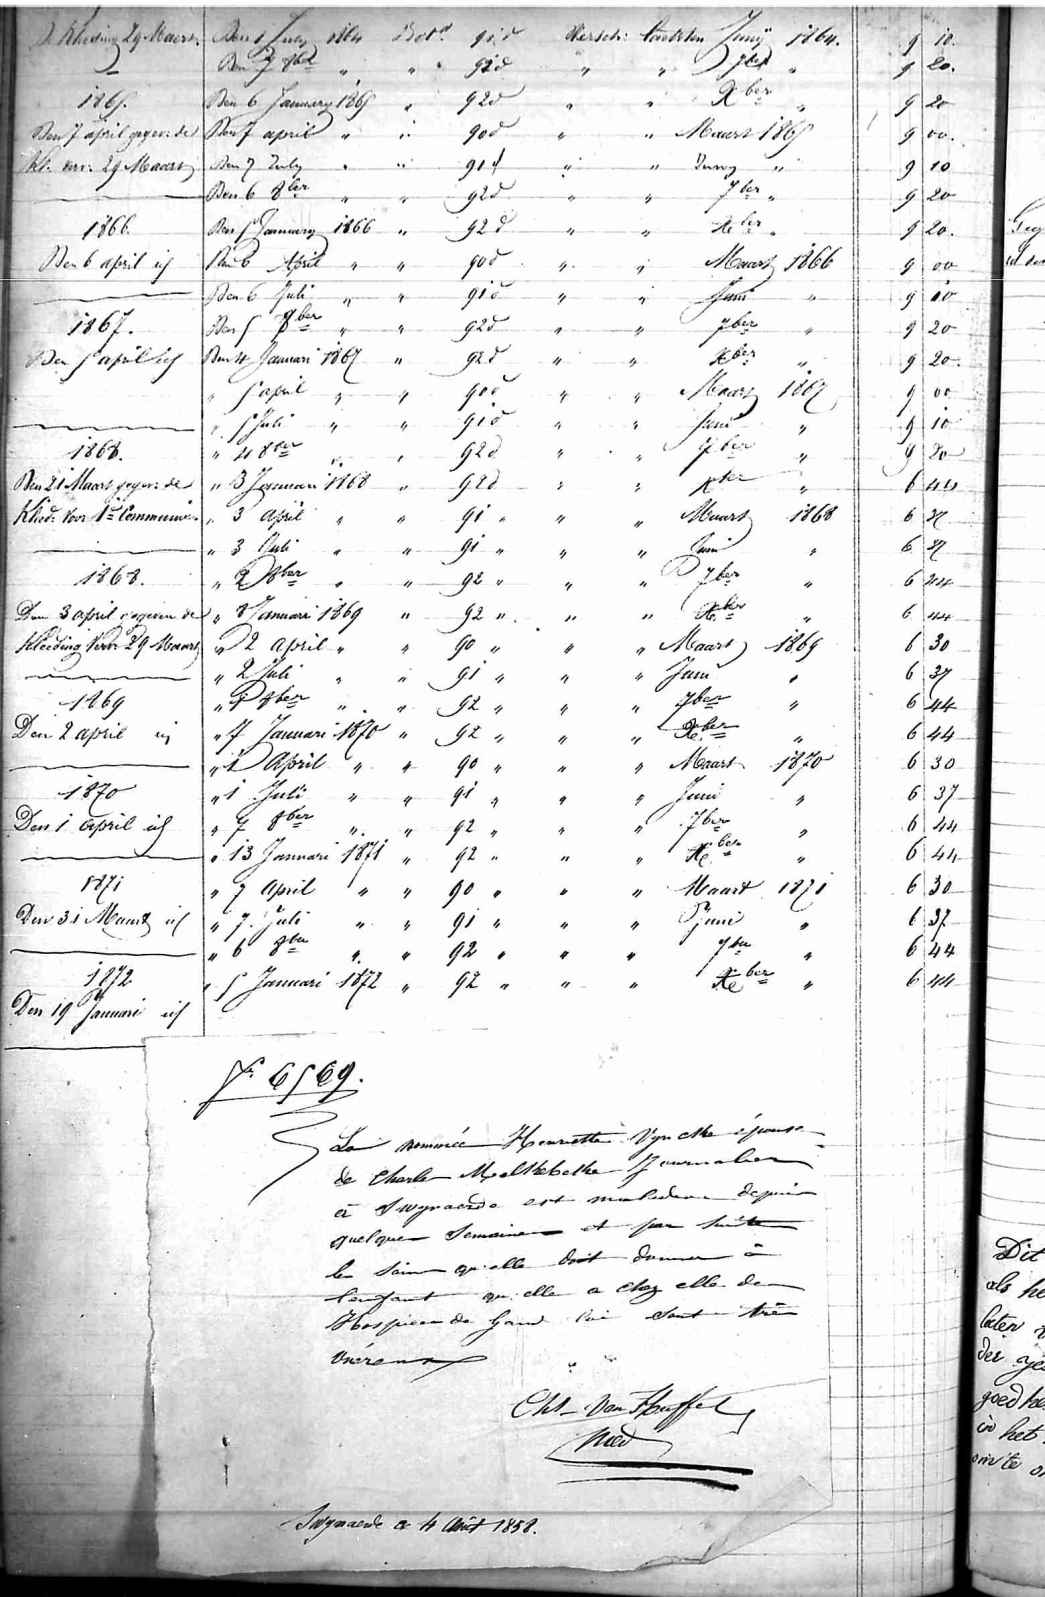 Kleeding 29 Maart Den 1 July 1864 Bet. 91 d Versch. Juny 1864. 9 10.
Den 7 8ber " " 92 d " " 7ber " 9 20.
1865. Den 6 January 1865 " 92 d " " Xber " 9 20
Den 7 april gegev: de Den 7 april " " 90 d " " Maart 1865 9 00.
kl. van 29 Maart Den 7 July " " 91 d " " Juny " 9 10
Den 6 8ber " " 92 d " " 7ber " 9 20
1866. Den 5 January 1866 " 92 d " " Xber " 9 20.
Den 6 april id Den 6 April " " 90 d " " Maart 1866 9 00
Den 6 Juli " " 91 d " " Juni " 9 10
1867. Den 5 8ber " " 92 d " " 7ber " 9 20
Den 5 april id Den 4 Januari 1867 " 92 d " " Xber " 9 20.
" 5 april " " 90 d " " Maart 1867 9 00
" 5 Juli " " 91 d " " Juni " 9 10
1868. " 4 8ber " " 92 d " " 7ber " 9 20
Den 21 Maart gegev: de " 3 Januari 1868 " 92 d " " Xber " 6 44
Kleed: voor 1e Communie " 3 April " " 91 " " " Maart 1868 6 37
" 3 Juli " " 91 " " " Juni " 6 37
1868. " 2 8ber " " 92 " " " 7ber " 6 44
Den 3 april gegeven de " 8 Januari 1869 " 92 " " " Xber " 6 44
Kleeding voor 29 Maart " 2 april " " 90 " " " Maart 1869 6 30
" 2 Juli " " 91 " " " Juni " 6 37
1869 " 8ber " " 92 " " " 7ber " 6 44
Den 2 april id " 7 Januari 1870 " 92 " " " Xber " 6 44
" 1 April " " 90 " " " Maart 1870 6 30
1870 " 1 Juli " " 91 " " " Juni " 6 37
Den 1 april id " 7 8ber " " 92 " " " 7ber " 6 44
" 13 Januari 1871 " 92 " " " Xber " 6 44
1871 " 7 April " " 90 " " " Maart 1871 6 30
Den 31 Maart id " 7 Juli " " 91 " " " Juni " 6 37
" 6 8ber " " 92 " " " 7ber " 6 44
1872 " 5 Januari 1872 " 92 " " " Xber " 6 44
Den 19 Januari id
6569.
La nommée Henriette Vyncke épouse
de Charle Journalier
à Swynaerde est malade depuis
quelque Semaines et par suite
les soins qu'elle doit donner à
l'enfant qu'elle a chez elle de
Hospice de Gand lui sont très
onéreux
Chs. Van Huffel
Med
Swynaerde a 4 Août 1858.
Dit
als he
later
der
goed
in het
om te